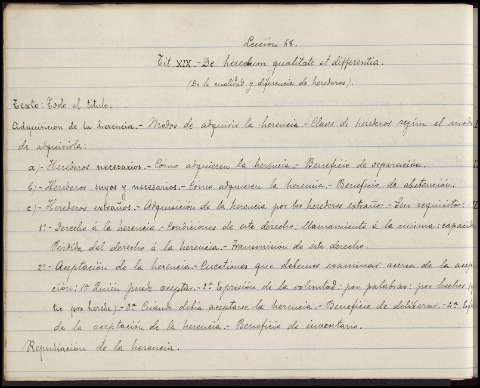 Leccion 68.
Tit XIX.- De heredum qualitate et differentia.
(De la cualidad y diferencia de herederos).
Texto: Todo el título.
Adquisicion de la herencia.- Modos de adquirir la herencia.- Clases de herederos según el modo
de adquirirla:
a)- Herederos necesarios.- Como adquieren la herencia.- Beneficio de separación.
b)- Herederos suyos y necesarios.- Como adquieren la herencia.- Beneficio de abstención.
c)- Herederos extraños.- Adquisición de la herencia por los herederos extraños.- Sus requisitos:
1º- Derecho á la herencia.- Condiciones de este derecho. Llamamiento á la misma: capacid
Pérdida del derecho á la herencia.- Transmision de este derecho.
2º- Aceptación de la herencia.- Cuestiones que debemos examinar acerca de la acep
ción: 1ª Quién puede aceptar.- 2ª Expresión de la voluntad: por palabras: por hechos
tio (pro herede).- 3ª Cuándo debía aceptarse la herencia.- Beneficio de deliberar.- 4ª
de la aceptación de la herencia.- Beneficio de inventario.
Repudiación de la herencia.